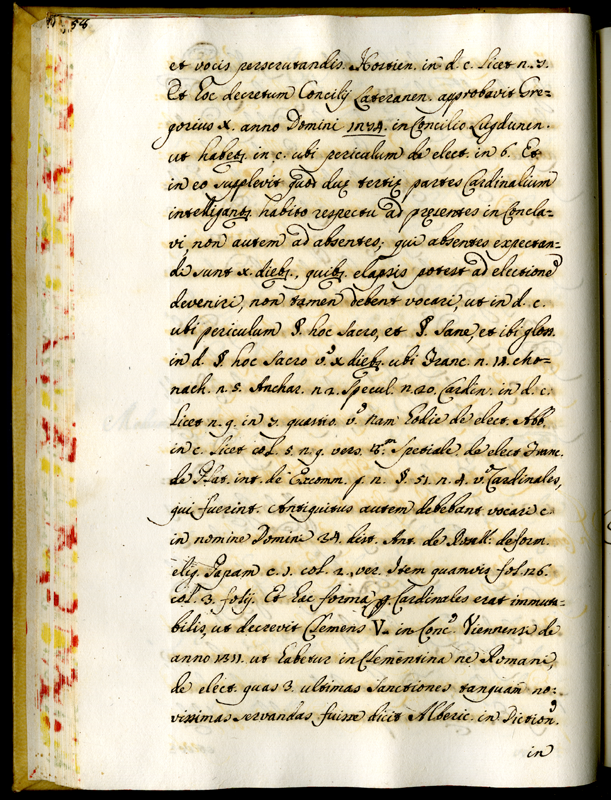 58
et vocis perscrutandis. Hostien. in d. c. Licet n. 7.
Et hoc decretum Concilij Lateranen. approbavit Gre-
gorius X. anno Domini 1274. in Concilio Lugdunen.
ut habetr. in c. ubi periculum de elect. in 6. Et
in eo supplevit quod duę tertię partes Cardinalium
intelligantr. habito respectu ad pręsentes in Concla-
vi non autem ad absentes; qui absentes expectan-
de sunt X. diebs., quibs. elapsis potest ad electione
devenire, non tamen debent vocari, ut in d. c.
ubi periculum §. hoc sacro, et §. Sane, et ibi glos.
in d. §. hoc sacro vo. X diebs. ubi Franc. n. 14.
nach. n. 5. Anchar. n 2. Specul. n. 20. Cardin. in d. c.
Licet n. 9. in 7. quęstio. vo. nam hodie de elect. Abb.
in c. Licet col. 5. n. 9. vers. speciale de elect. Franc.
de Plat. int. de Excomm. n. §. 51. n. 4. vo. Cardinales,
qui fuerint. Antiquitus autem debebant vocari c.
in nomine Domini 24. dist. Ant. de Rosell. de form.
elig. Papam c. 1. col. 2. ver. Item quamvis fol. 126.
col. 3. folij. Et hac forma Cardinales erat immuta-
bilis, ut decrevit Clemens V. in Conc.o Viennense de
anno 1311. ut habetur in Clementina ne Romani,
de elect. quas 3. ultimas sanctiones tanquam no-
vissimas servandas fuisse dicit Alberic. in Diction.
in